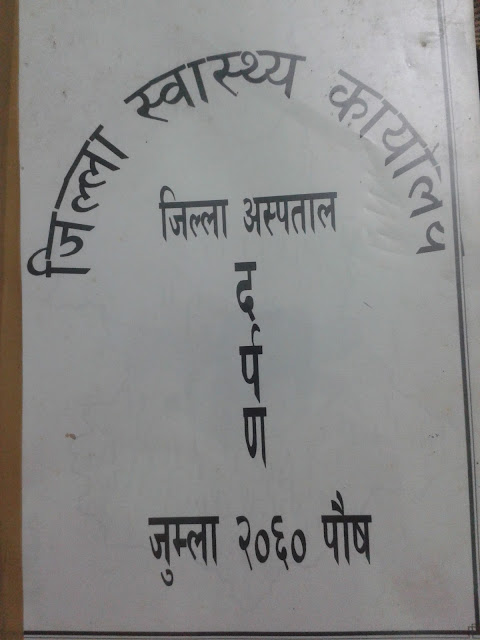 जिल्ला स्वास्थ्य कार्यालय
जिल्ला अस्पताल
द
र्प
ण
जुम्ला २०६० पौष